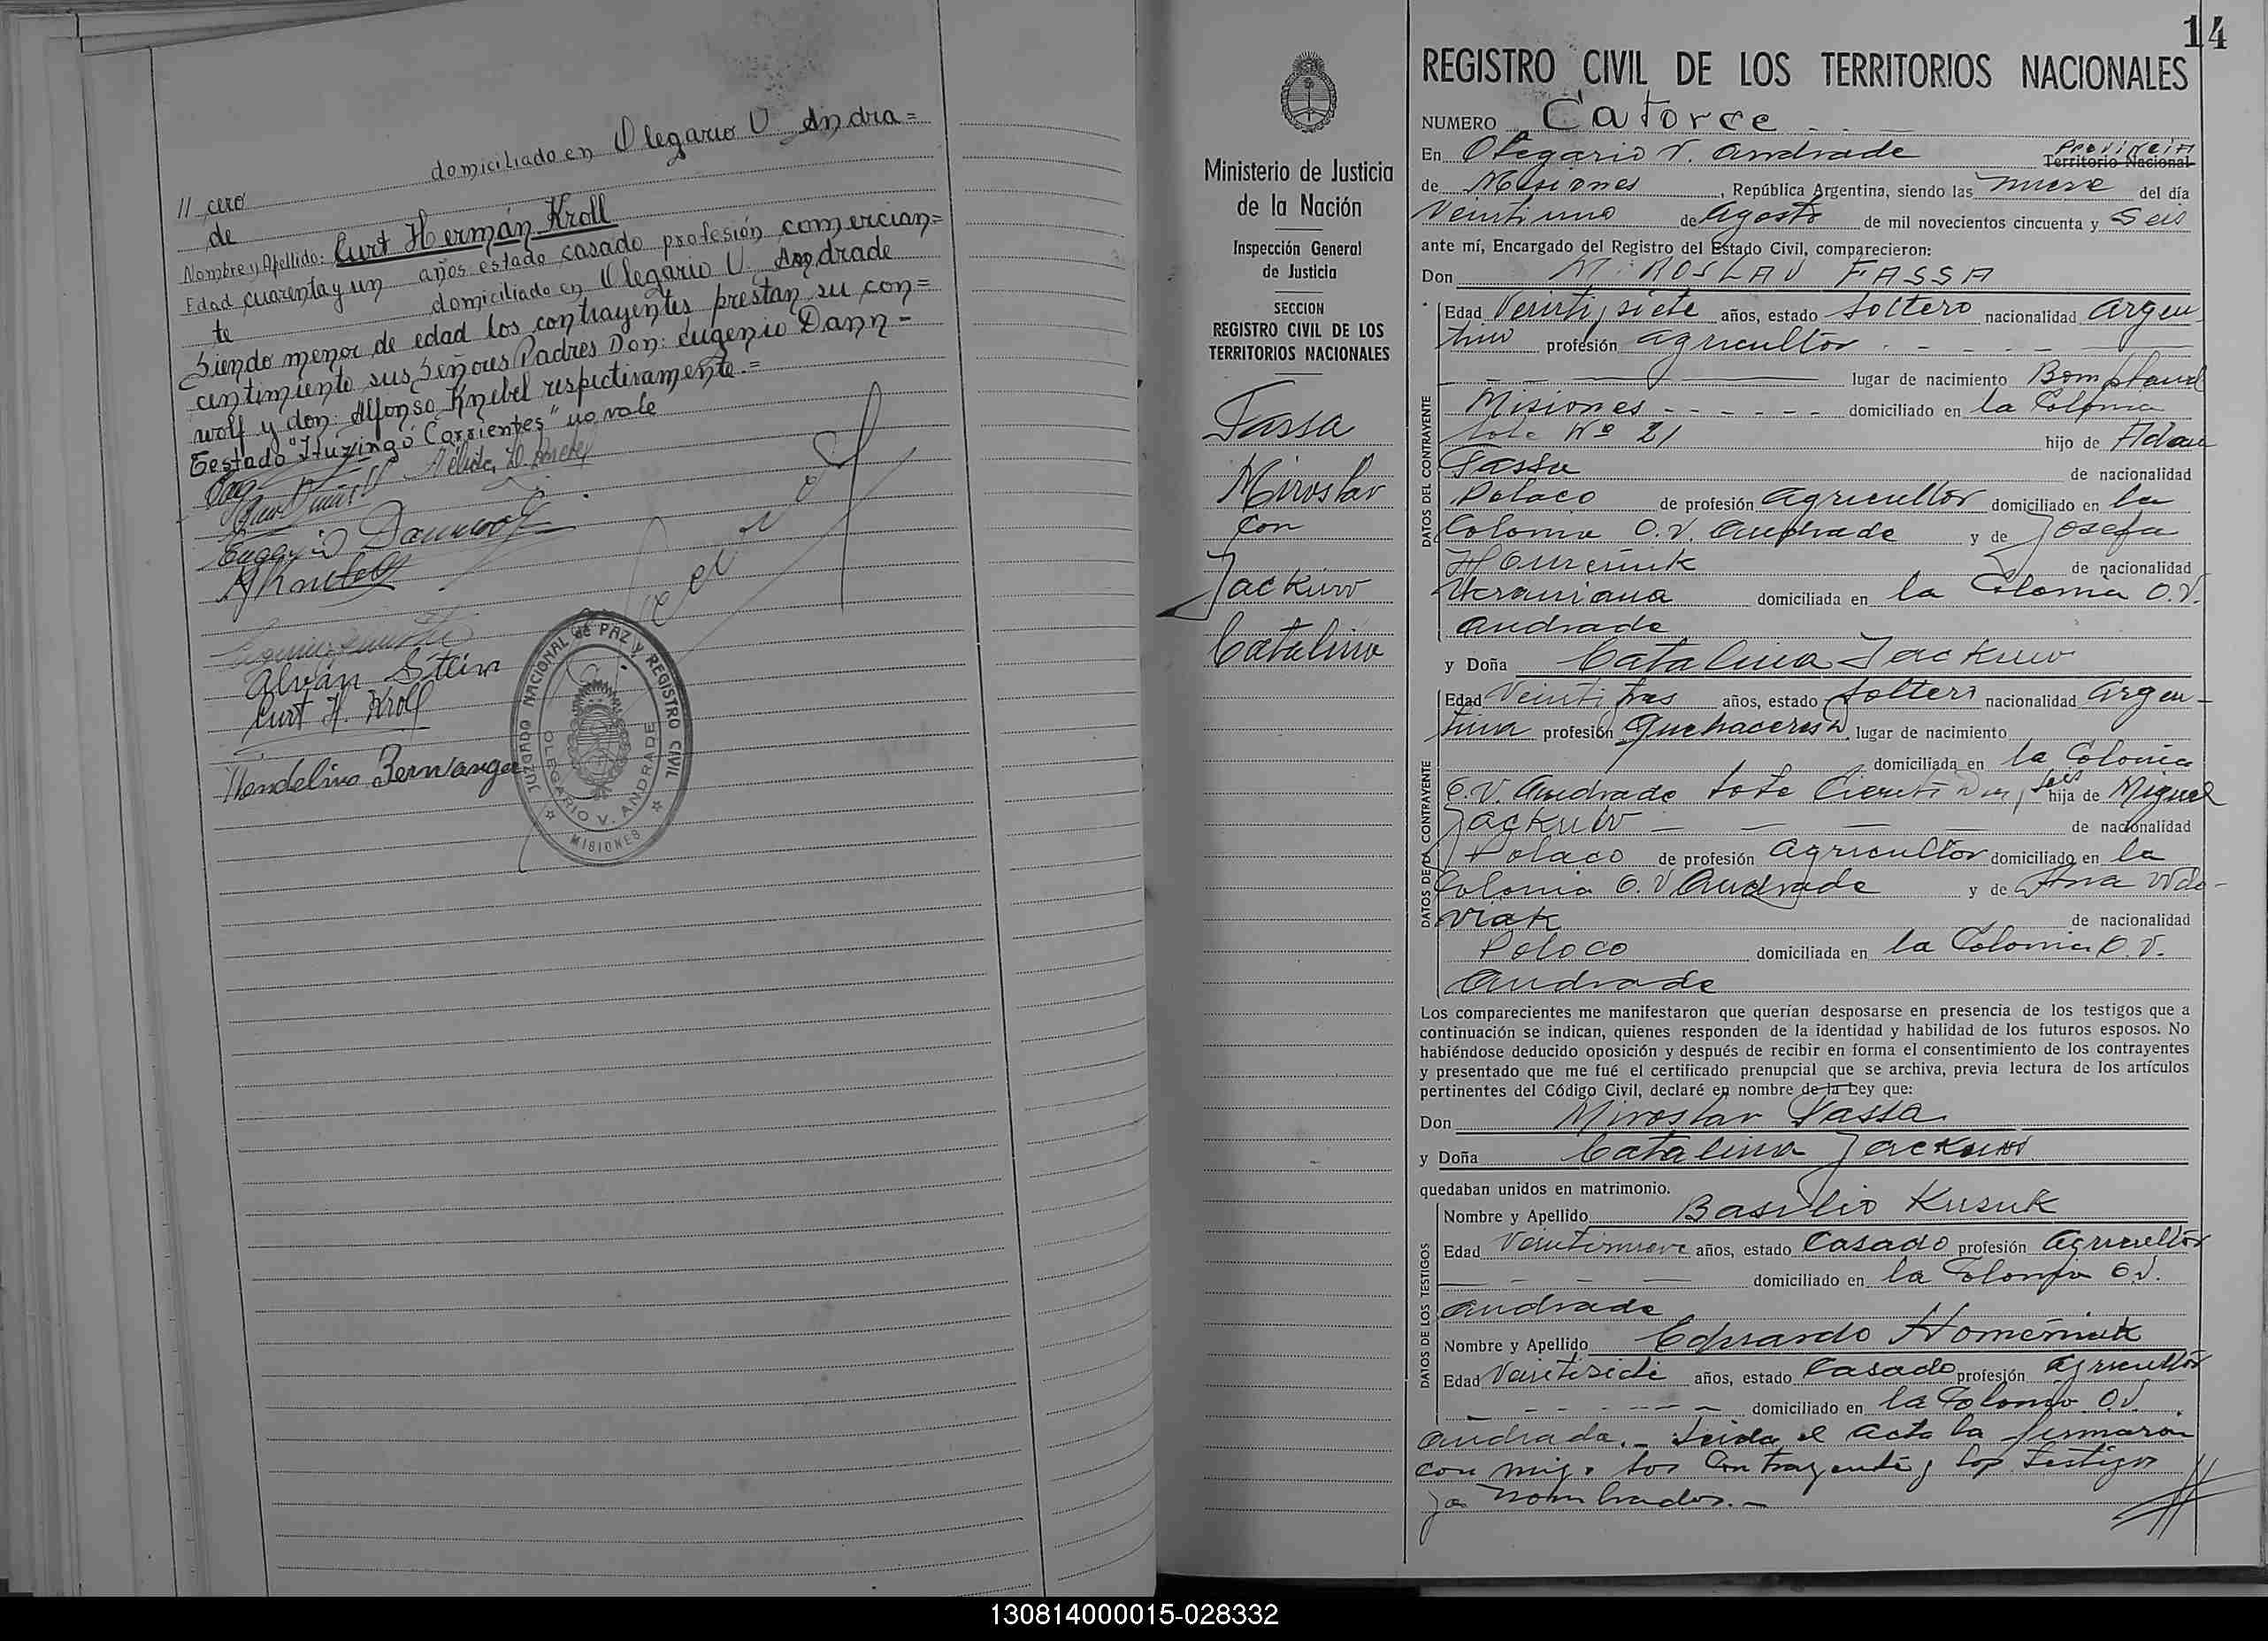 // cero domiciliado en Olegario V. Andra=
de
Nombre y Apellido: Curt Hermán Kroll
Edad cuarenta y un años estado casado profesión comercian=
te domiciliado en Olegario V. Andrade
Siendo menor de edad los contrayentes prestan su con=
centimiento sus Señores Padres Don: Eugenio Dann-
wolf y don: Alfonso Knebel respectivamente.=
Testado "Ituzingo Corrientes" no vale
Eugenio Dannwolf
A Knebel
Alván Stein
Curt H. Kroll
Wendelino Bernanger
JUZGADO NACIONAL de PAZ y REGISTRO CIVIL
OLEGARIO V. ANDRADE
MISIONES
Ministerio de Justicia
de la Nación
Inspección General
de Justicia
SECCION
REGISTRO CIVIL DE LOS
TERRITORIOS NACIONALES
Fassa
Miroslav
con
Jackuw
Catalina
14
REGISTRO CIVIL DE LOS TERRITORIOS NACIONALES
NUMERO Catorce
En Olegario V. Andrade Provincia Territorio Nacional
de Misiones, República Argentina, siendo las nueve del día
Veintiuno de Agosto de mil novecientos cincuenta y Seis
ante mí, Encargado del Registro del Estado Civil, comparecieron:
Don MIROSLAV FASSA
DATOS DEL CONTRAYENTE
Edad Veintisiete años, estado Soltero nacionalidad Argen
tino profesión agricultor
lugar de nacimiento Bompland
Misiones domiciliado en la Colonia
Lote Nº 21 hijo de Adan
Fassa de nacionalidad
Polaco de profesión agricultor domiciliado en la
Colonia O.V. Andrade y de Josefa
Homeniuk de nacionalidad
Ucraniana domiciliada en la Colonia O.V.
Andrade
y Doña Catalina Jackuw
DATOS DE LA CONTRAYENTE
Edad Veinti tres años, estado Soltera nacionalidad Argen-
tina profesión Quehaceres D. lugar de nacimiento
domiciliada en la Colonia
O.V. Andrade Lote hija de Miguel
Jackuw de nacionalidad
Polaco de profesión Agricultor domiciliado en la
Colonia O.V Andrade y de Ana Wdo-
viak de nacionalidad
Polaco domiciliada en la Colonia O.V.
Andrade
Los comparecientes me manifestaron que querían desposarse en presencia de los testigos que a
continuación se indican, quienes responden de la identidad y habilidad de los futuros esposos. No
habiéndose deducido oposición y después de recibir en forma el consentimiento de los contrayentes
y presentado que me fué el certificado prenupcial que se archiva, previa lectura de los artículos
pertinentes del Código Civil, declaré en nombre de la Ley que:
Don Miroslav Fassa
y Doña Catalina Jackuw
quedaban unidos en matrimonio.
DATOS DE LOS TESTIGOS
Nombre y Apellido Basilio Kusuk
Edad Veintinueve años, estado Casado profesión Agricultor
domiciliado en la Colonia O.V.
Andrade
Nombre y Apellido Eduardo Homeniuk
Edad Veintisiete años, estado Casado profesión agricultor
domiciliado en la Colonia O.V.
Andrade.- Leida el Acta la firmaron
con migo los Contrayente y los testigos
ya nombrados.-
130814000015-028332